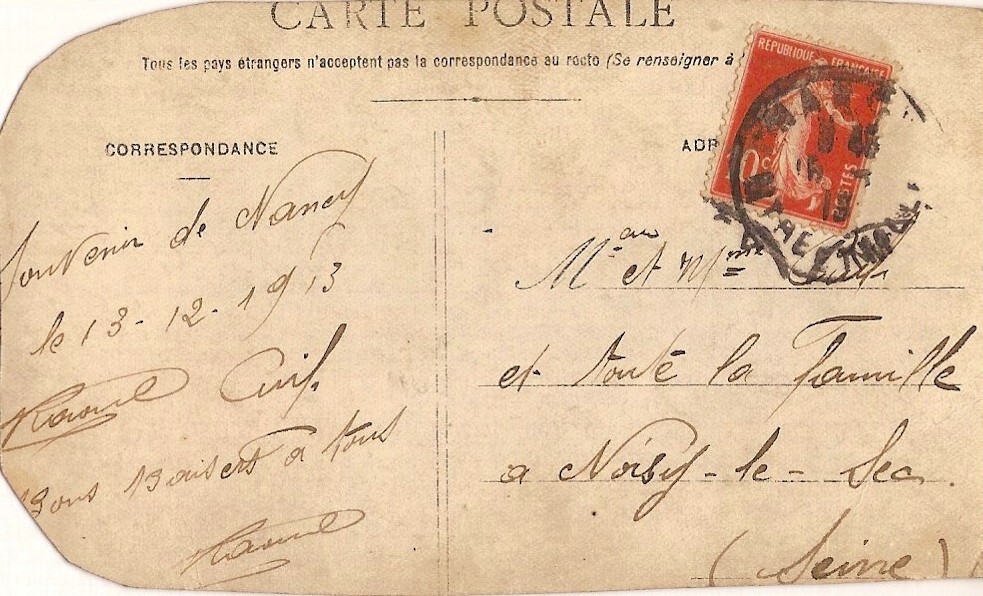 CARTE POSTALE
Tous les pays étrangers n'acceptent pas la correspondance au recto (Se renseigner à
CORRESPONDANCE
ADR
REPUBLIQUE FRANÇAISE
POSTES
Souvenir de Nancy
le 13-12-1913
Raoul Cuif.
Bons Baisers à tous
Raoul
Mr et Mme
et toute la Famille
a Noisy-le-Sec.
(Seine)